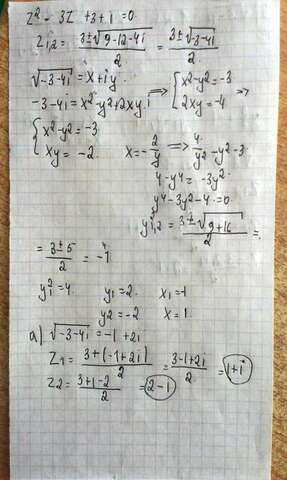 z² - 3z + 3 + i = 0
z1,2 = (3 ± √(9-12-4i))/2 = (3 ± √(-3-4i))/2
√(-3-4i) = x + iy
-3-4i = x² - y² + 2xyi => { x² - y² = -3 =>
2xy = -4
{ x² - y² = -3
xy = -2 x = -2/y => 4/y² - y² = -3
4 - y⁴ = -3y²
y⁴ - 3y² - 4 = 0
y²1,2 = (3 ± √(9+16))/2 =
= (3 ± 5)/2 = 4 -1
y1² = 4 y1 = 2 x1 = -1
y2 = -2 x = 1
a) √(-3-4i) = -1 + 2i
z1 = (3 + (-1+2i))/2 = (3-1+2i)/2 = 1+i
z2 = (3+1-2)/2 = 2-i